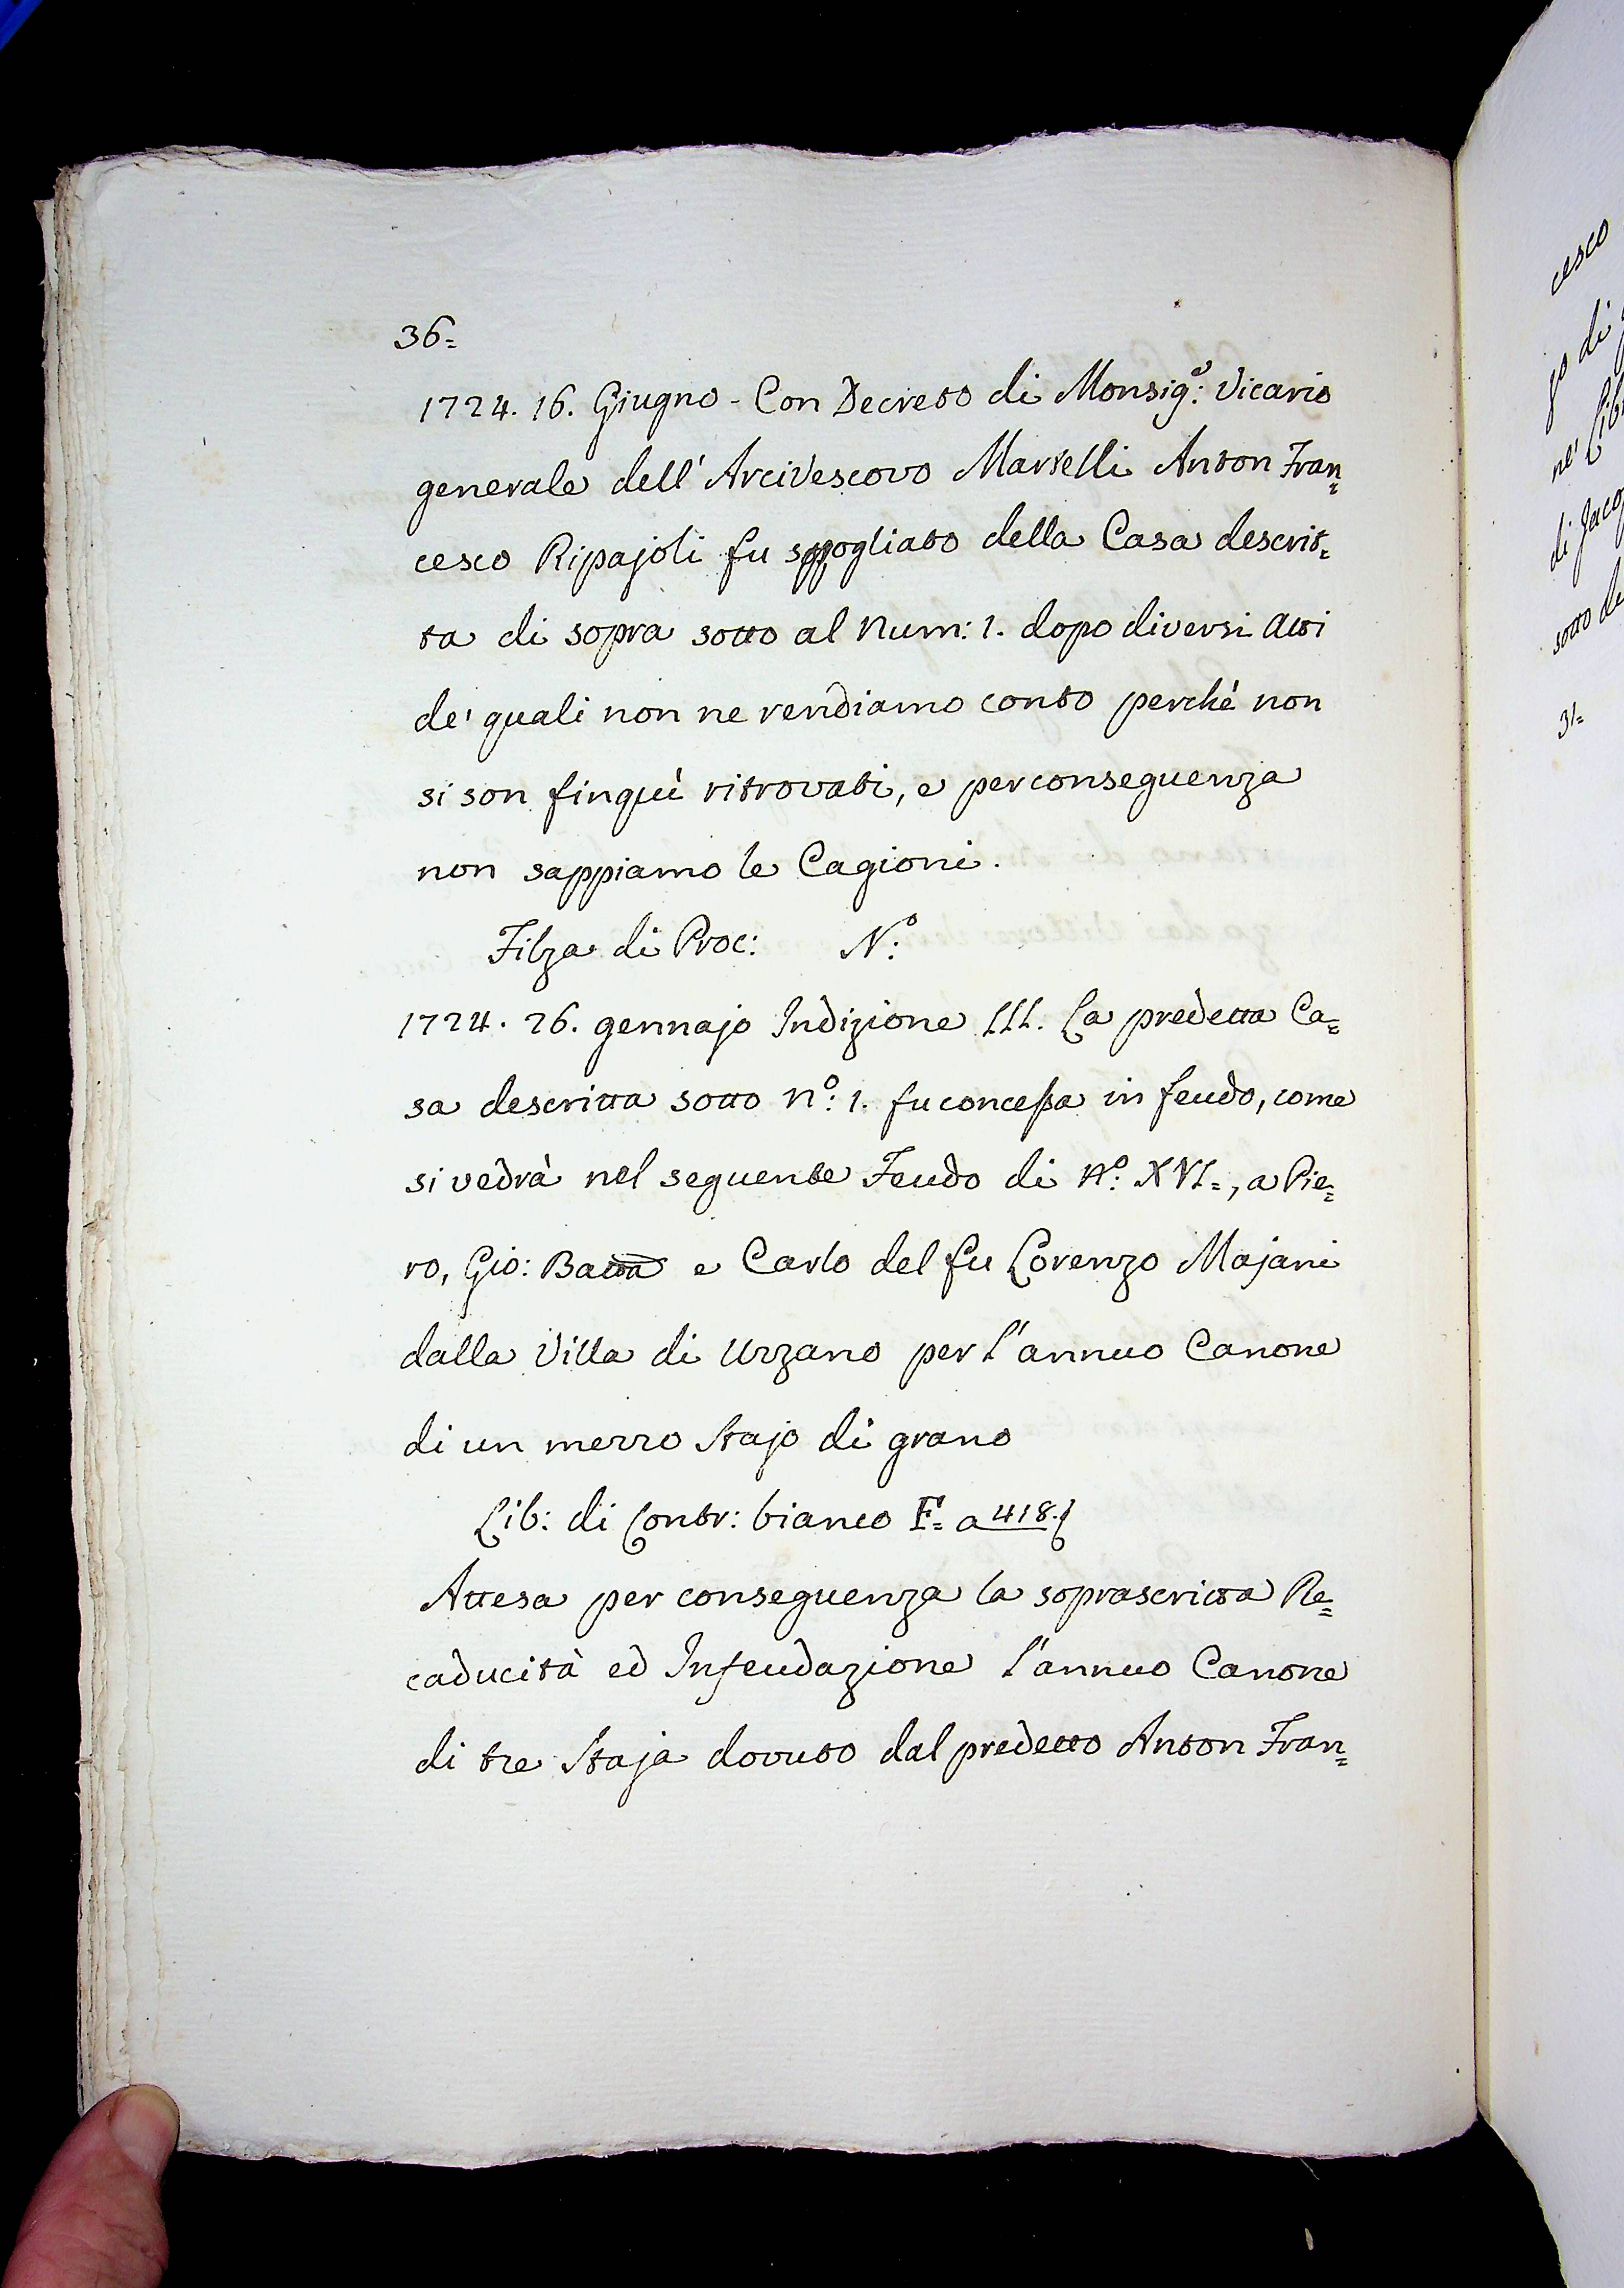 36=
1724. 16. Giugno - Con Decreto di Monsig.e: Vicario
generale dell' Arcivescovo Martelli Anton Fran=
cesco Ripajoli fu spogliato della Casa descrit=
ta di sopra sotto al Num: 1. dopo diversi Atti
de' quali non ne rendiamo conto perchè non
si son finquì ritrovati, e perconseguenza
non sappiamo le Cagioni.
Filza di Proc: N.o:
1724. 26. gennajo Indizione III. La predetta Ca=
sa descritta sotto n.o: 1. fu concessa in feudo, come
si vedrà nel seguente Feudo di N.o: XVI=, a Pie=
ro, Gio: Batta e Carlo del fu Lorenzo Majani
dalla Villa di Uzzano per l'annuo Canone
di un mezzo Stajo di grano
Lib: di Contr: bianco F= a 418.
Attesa per conseguenza la soprascritta Re=
caducità ed Infeudazione l'annuo Canone
di tre Staja dovuto dal predetto Anton Fran=
cesco
go di
ne' Lib
di Jacop
sotto de
31=